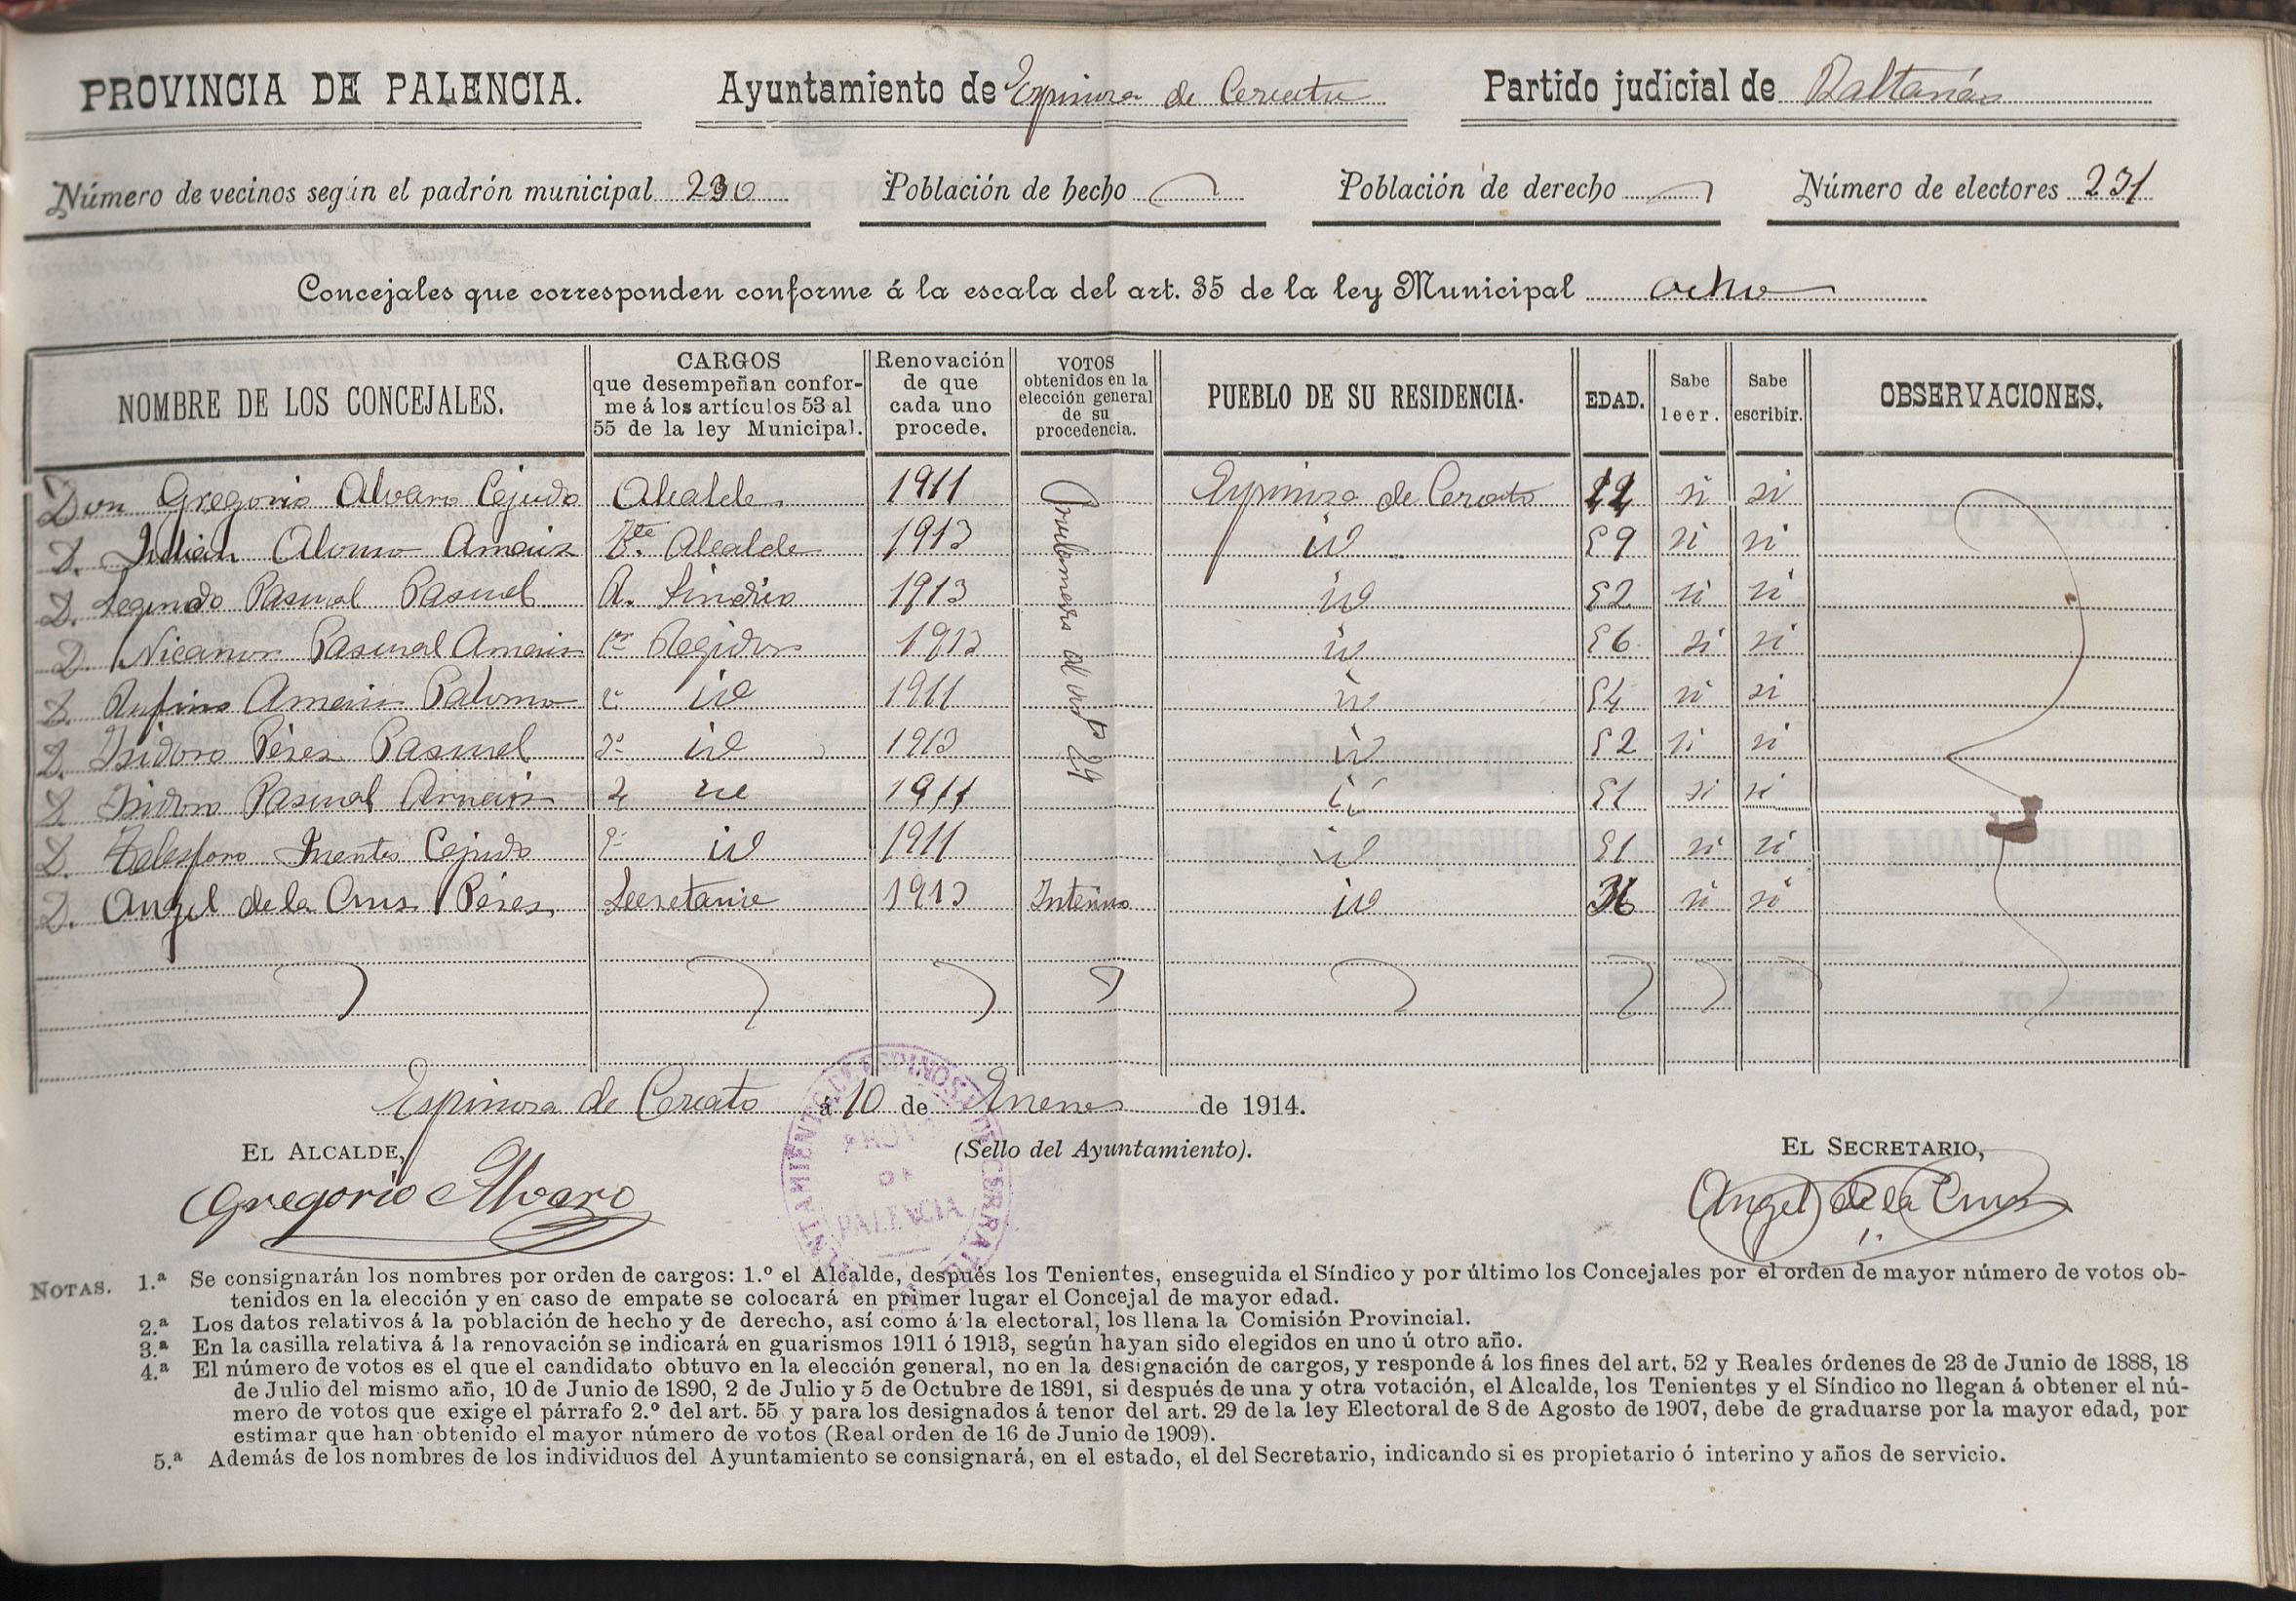 PROVINCIA DE PALENCIA. Ayuntamiento de Espinosa de Cerrato Partido judicial de Baltanás
Número de vecinos según el padrón municipal 230 Población de hecho Población de derecho Número de electores 231
Concejales que corresponden conforme á la escala del art. 35 de la ley Municipal ocho
NOMBRE DE LOS CONCEJALES. CARGOS que desempeñan conforme á los artículos 53 al 55 de la ley Municipal. Renovación de que cada uno procede. VOTOS obtenidos en la elección general de su procedencia. PUEBLO DE SU RESIDENCIA. EDAD. Sabe leer. Sabe escribir. OBSERVACIONES.
Don Gregorio Alvaro Cejudo Alcalde 1911 Espinosa de Cerrato si si
D. Julian Alonso Arnaiz Tte. Alcalde 1913 id 59 si si
D. Segundo Pascual Pascual R. Sindico 1913 id 52 si si
D. Nicanor Pascual Arnaiz 1er Regidor 1913 id 56 si si
D. Rufino Arnaiz Palomo 2º id 1911 id 54 si si
D. Isidoro Pérez Pascual 3º id 1913 id 52 si si
D. Isidoro Pascual Arnaiz 4 id 1911 id 51 si si
D. Telesforo Fuentes Cejudo 5º id 1911 id 51 si si
D. Angel de la Cruz Pérez Secretario 1913 Interino id 36 si si
Proclamados al art 29
Espinosa de Cerrato á 10 de Enero de 1914.
EL ALCALDE, (Sello del Ayuntamiento). EL SECRETARIO,
Gregorio Alvaro Angel de la Cruz
AYUNTAMIENTO DE ESPINOSA DE CERRATO
PALENCIA
NOTAS. 1.ª Se consignarán los nombres por orden de cargos: 1.º el Alcalde, después los Tenientes, enseguida el Síndico y por último los Concejales por el orden de mayor número de votos ob-
tenidos en la elección y en caso de empate se colocará en primer lugar el Concejal de mayor edad.
2.ª Los datos relativos á la población de hecho y de derecho, así como á la electoral, los llena la Comisión Provincial.
3.ª En la casilla relativa á la renovación se indicará en guarismos 1911 ó 1913, según hayan sido elegidos en uno ú otro año.
4.ª El número de votos es el que el candidato obtuvo en la elección general, no en la designación de cargos, y responde á los fines del art. 52 y Reales órdenes de 23 de Junio de 1888, 18
de Julio del mismo año, 10 de Junio de 1890, 2 de Julio y 5 de Octubre de 1891, si después de una y otra votación, el Alcalde, los Tenientes y el Síndico no llegan á obtener el nú-
mero de votos que exige el párrafo 2.º del art. 55 y para los designados á tenor del art. 29 de la ley Electoral de 8 de Agosto de 1907, debe de graduarse por la mayor edad, por
estimar que han obtenido el mayor número de votos (Real orden de 16 de Junio de 1909).
5.ª Además de los nombres de los individuos del Ayuntamiento se consignará, en el estado, el del Secretario, indicando si es propietario ó interino y años de servicio.